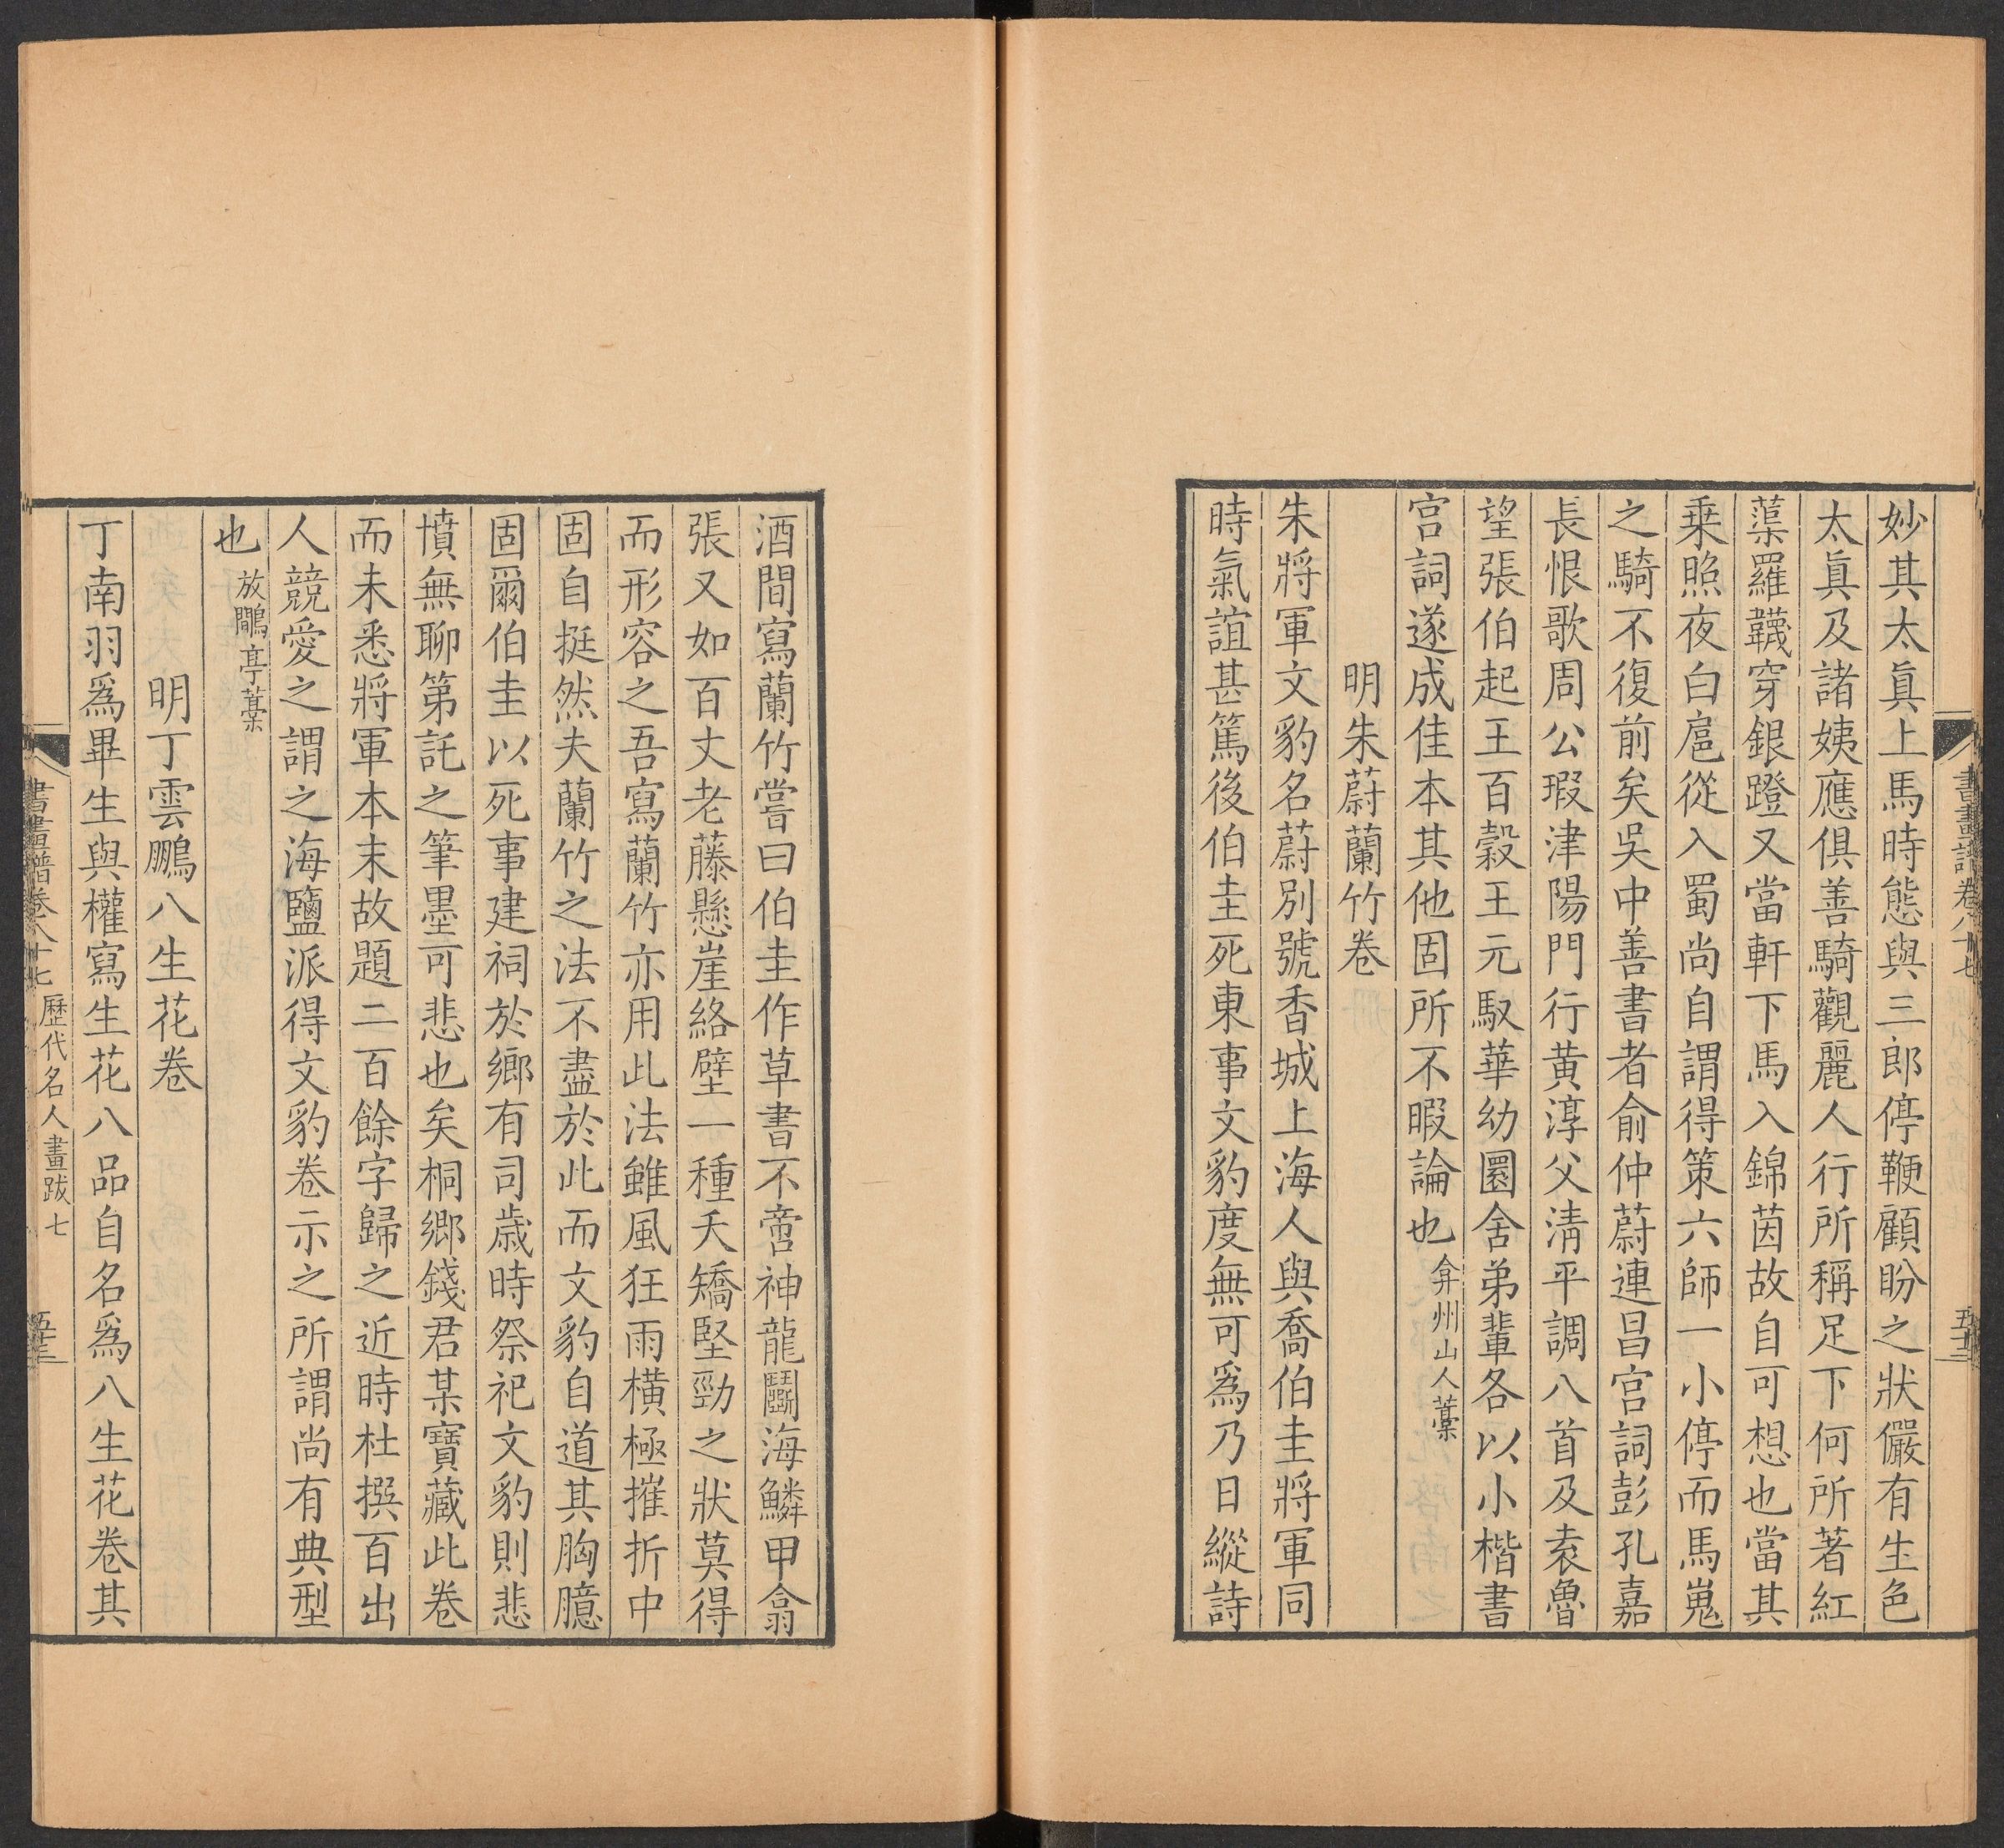 妙其太眞上馬時態與三郎停鞭顧盼之狀儼有生色
太眞及諸姨應俱善騎觀麗人行所稱足下何所著紅
蕖羅韤穿銀蹬又當軒下馬入錦茵故自可想也當其
乗照夜白扈從入蜀尚自謂得策六師一小停而馬嵬
之騎不復前矣吳中善書者俞仲蔚連昌宫詞彭孔嘉
長恨歌周公瑕津陽門行黄淳父淸平調八首及袁魯
望張伯起王百榖王元馭華幼圜舍弟輩各以小楷書
宫詞遂成佳本其他固所不暇論也弇州山人藁
明朱蔚蘭竹卷
朱將軍文豹名蔚別號香城上海人與喬伯圭將軍同
時氣誼甚篤後伯圭死東事文豹度無可爲乃日縱詩
酒間寫蘭竹嘗曰伯圭作草書不啻神龍鬭海鱗甲翕
張又如百丈老藤懸崖絡壁一種夭矯堅勁之狀莫得
而形容之吾寫蘭竹亦用此法雖風狂雨橫極摧折中
固自挺然夫蘭竹之法不盡於此而文豹自道其胸臆
固爾伯圭以死事建祠於鄉有司歲時祭祀文豹則悲
墳無聊第託之筆墨可悲也矣桐鄉錢君某寶藏此卷
而未悉將軍本末故題二百餘字歸之近時杜撰百出
人競愛之謂之海鹽派得文豹卷示之所謂尚有典型
也放鷴亭藁
明丁雲鵬八生花卷
丁南羽爲畢生與權寫生花八品自名爲八生花卷其
書畫譜卷八十七 歷代名人畫跋七 五十三